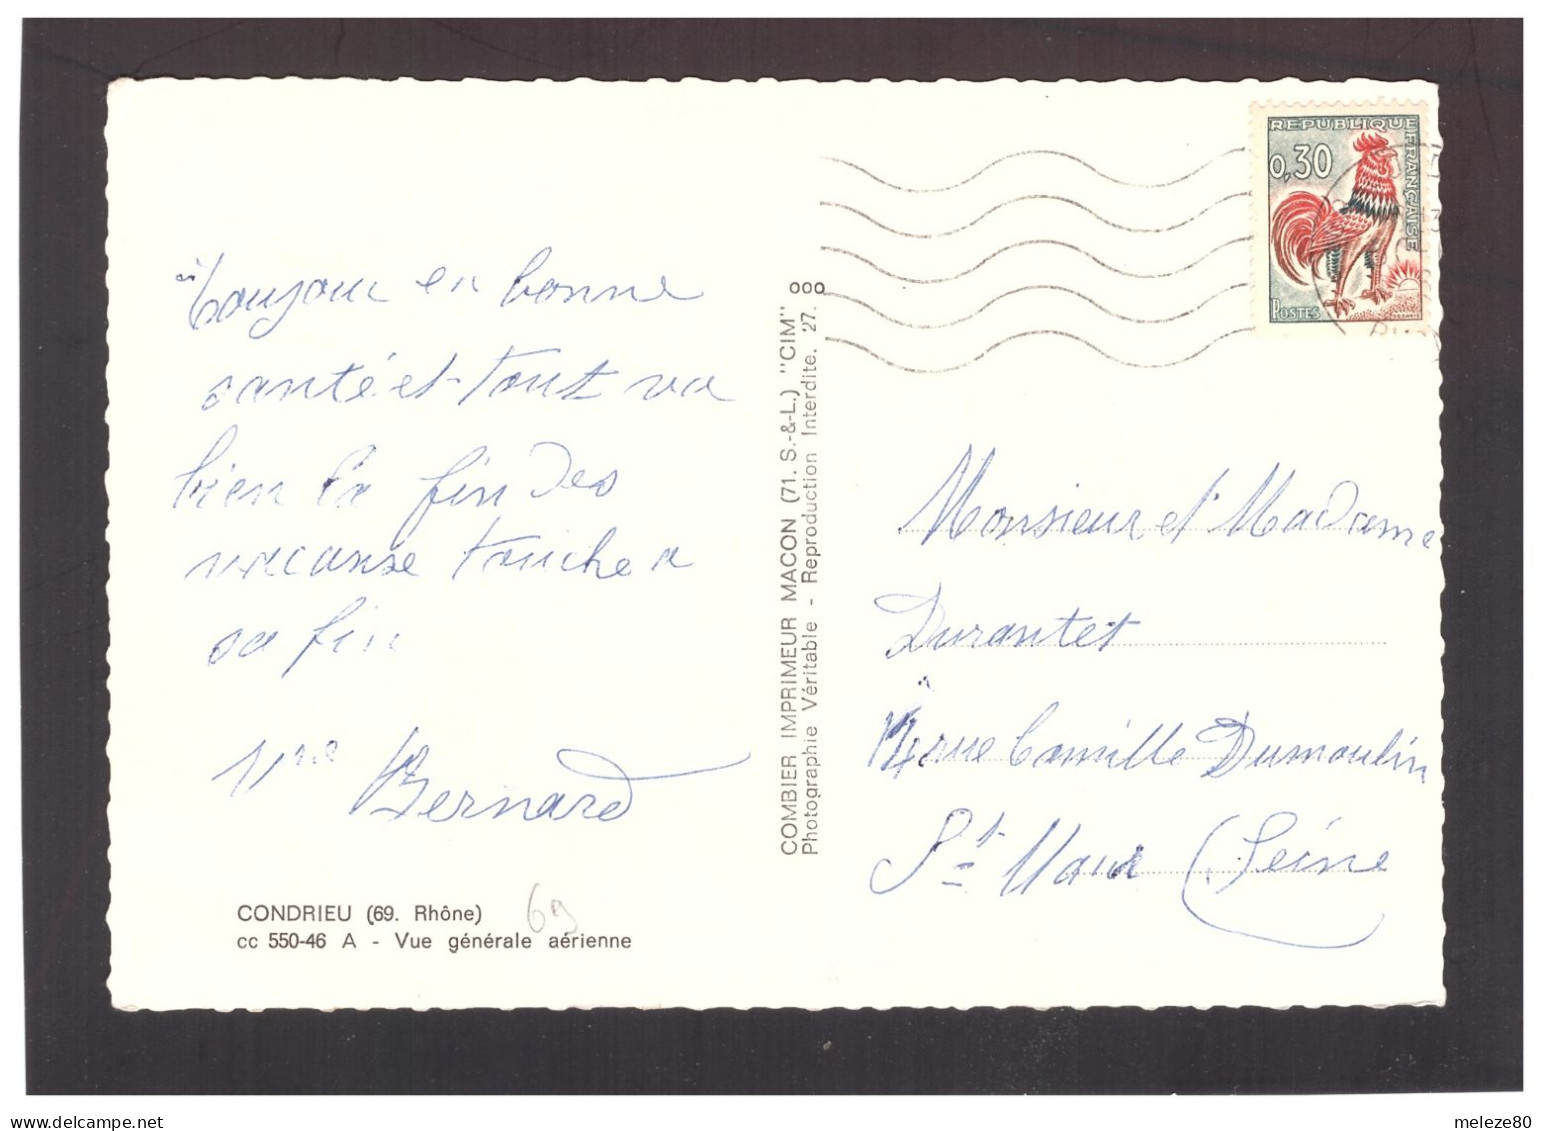 Toujour en bonne
santé et tout va
bien la fin des
vacanse touche a
sa fin
Bernard
CONDRIEU (69. Rhône)
69
cc 550-46 A - Vue générale aérienne
COMBIER IMPRIMEUR MACON (71. S.-&-L.) "CIM"
Photographie Véritable - Reproduction Interdite. 27.
000
REPUBLIQUE
FRANÇAISE
0,30
POSTES
Monsieur et Madame
Durantet
rue Camille Dumoulin
St Maur (Seine
meleze80